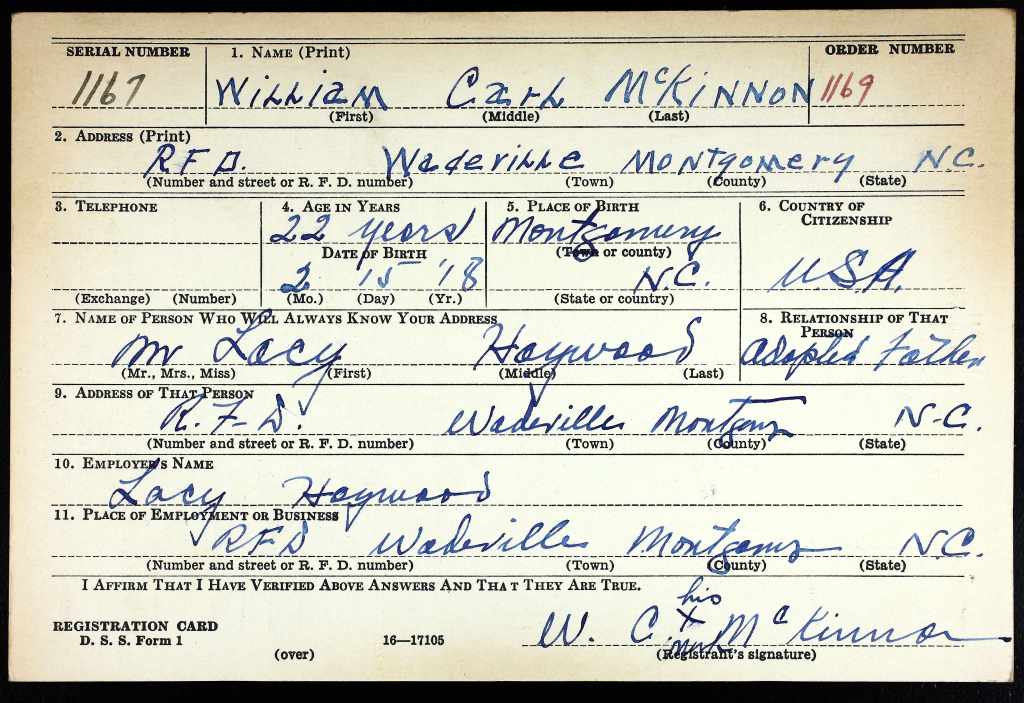 SERIAL NUMBER 1. NAME (Print) ORDER NUMBER
1167 William Carl McKinnon 1169
(First) (Middle) (Last)
2. ADDRESS (Print)
R F D. Wadeville Montgomery N.C.
(Number and street or R. F. D. number) (Town) (County) (State)
3. TELEPHONE 4. AGE IN YEARS 5. PLACE OF BIRTH 6. COUNTRY OF CITIZENSHIP
22 years Montgomery
DATE OF BIRTH (Town or county) U.S.A.
2 15 '18 N.C.
(Exchange) (Number) (Mo.) (Day) (Yr.) (State or country)
7. NAME OF PERSON WHO WILL ALWAYS KNOW YOUR ADDRESS 8. RELATIONSHIP OF THAT PERSON
Mr Lacy Haywood Adopted Father
(Mr., Mrs., Miss) (First) (Middle) (Last)
9. ADDRESS OF THAT PERSON
R.F.D. Wadeville Montgomy N-C.
(Number and street or R. F. D. number) (Town) (County) (State)
10. EMPLOYER'S NAME
Lacy Haywood
11. PLACE OF EMPLOYMENT OR BUSINESS
RFD Wadeville Montgomy N.C.
(Number and street or R. F. D. number) (Town) (County) (State)
I AFFIRM THAT I HAVE VERIFIED ABOVE ANSWERS AND THAT THEY ARE TRUE.
his
REGISTRATION CARD W. C. X McKinnon
D. S. S. Form 1 16—17105 mark
(over) (Registrant's signature)